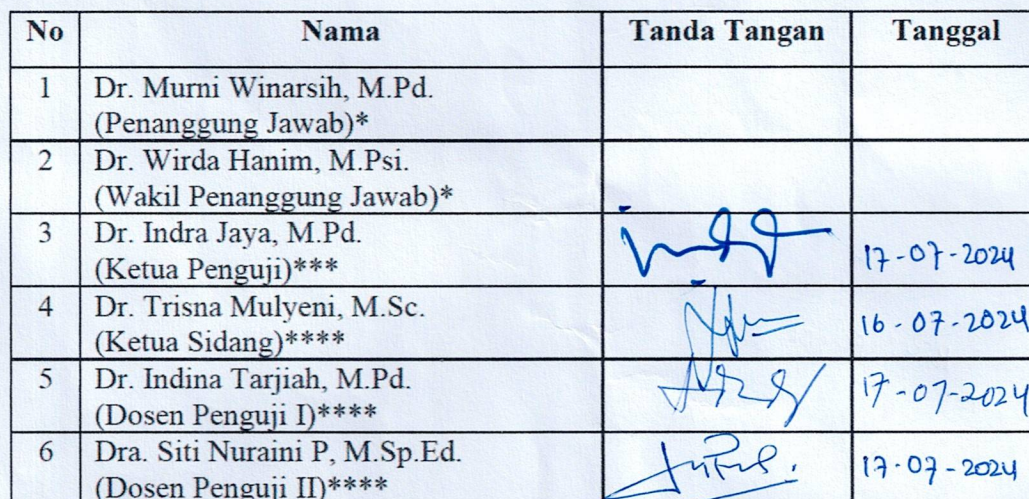 No Nama Tanda Tangan Tanggal
1 Dr. Murni Winarsih, M.Pd.
(Penanggung Jawab)*
2 Dr. Wirda Hanim, M.Psi.
(Wakil Penanggung Jawab)*
3 Dr. Indra Jaya, M.Pd.
(Ketua Penguji)*** 17-07-2024
4 Dr. Trisna Mulyeni, M.Sc.
(Ketua Sidang)**** 16-07-2024
5 Dr. Indina Tarjiah, M.Pd.
(Dosen Penguji I)**** 17-07-2024
6 Dra. Siti Nuraini P, M.Sp.Ed.
(Dosen Penguji II)**** 17-07-2024